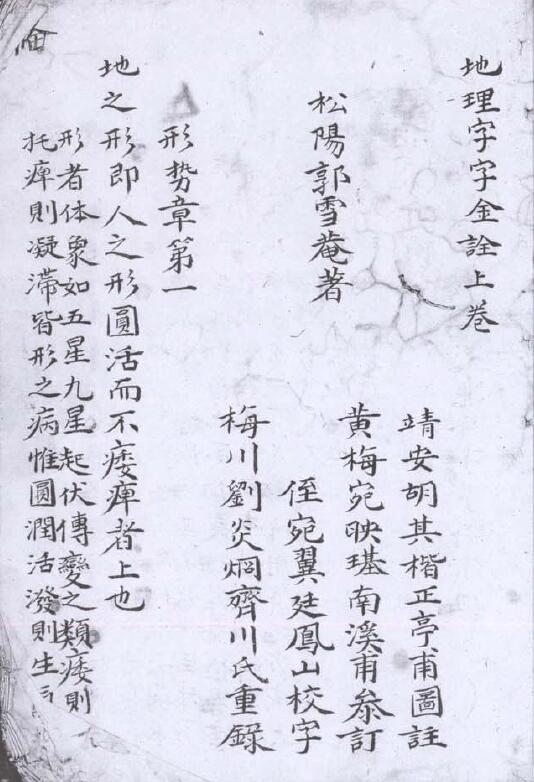 地理字字金詮上卷
松陽郭雪菴著
靖安胡其楷正亭甫圖註
黃梅宛映琪南溪甫叅訂
侄宛翼廷鳳山校字
梅川劉炎烱齊川氏重錄
形势章第一
地之形即人之形圓活而不痿痺者上也
形者体象如五星九星起伏傳變之類痿則
托痺則凝滯皆形之病惟圓潤活潑則生